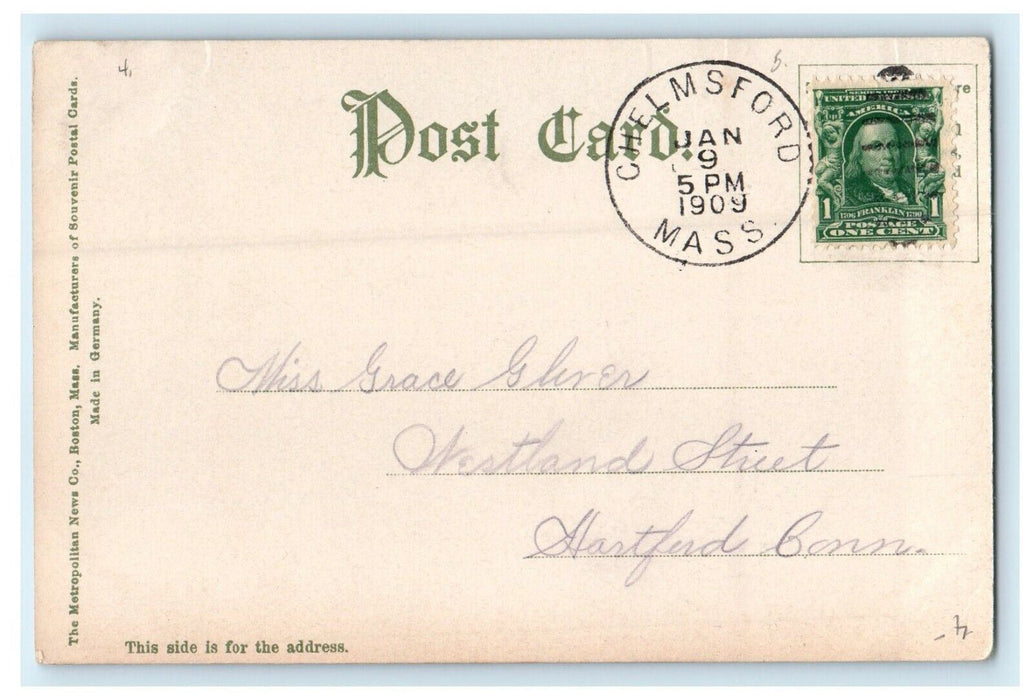 4.
5.
Post Card.
CHELMSFORD
JAN
9
5 PM
1909
MASS.
UNITED STATES OF
AMERICA
1 1706 FRANKLIN 1790 1
POSTAGE
ONE CENT
Miss Grace Glover
Westland Street
Hartford Conn.
The Metropolitan News Co., Boston, Mass. Manufacturers of Souvenir Postal Cards.
Made in Germany.
This side is for the address.